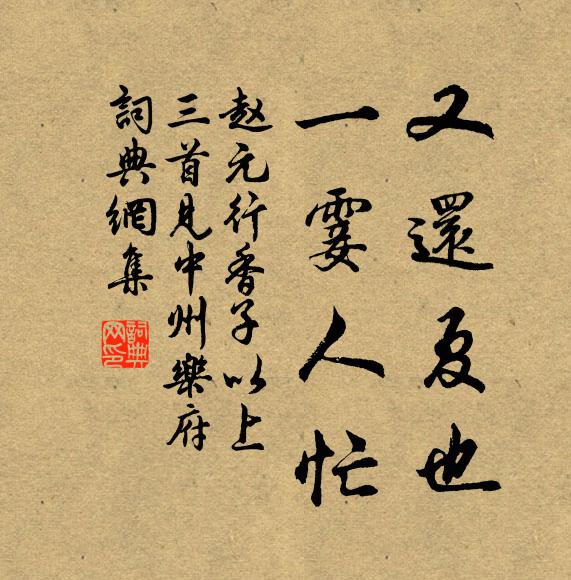 又還夏也
一霎人忙
赵元行香子以上
三首見中州樂府
詞典網集
詞典網印